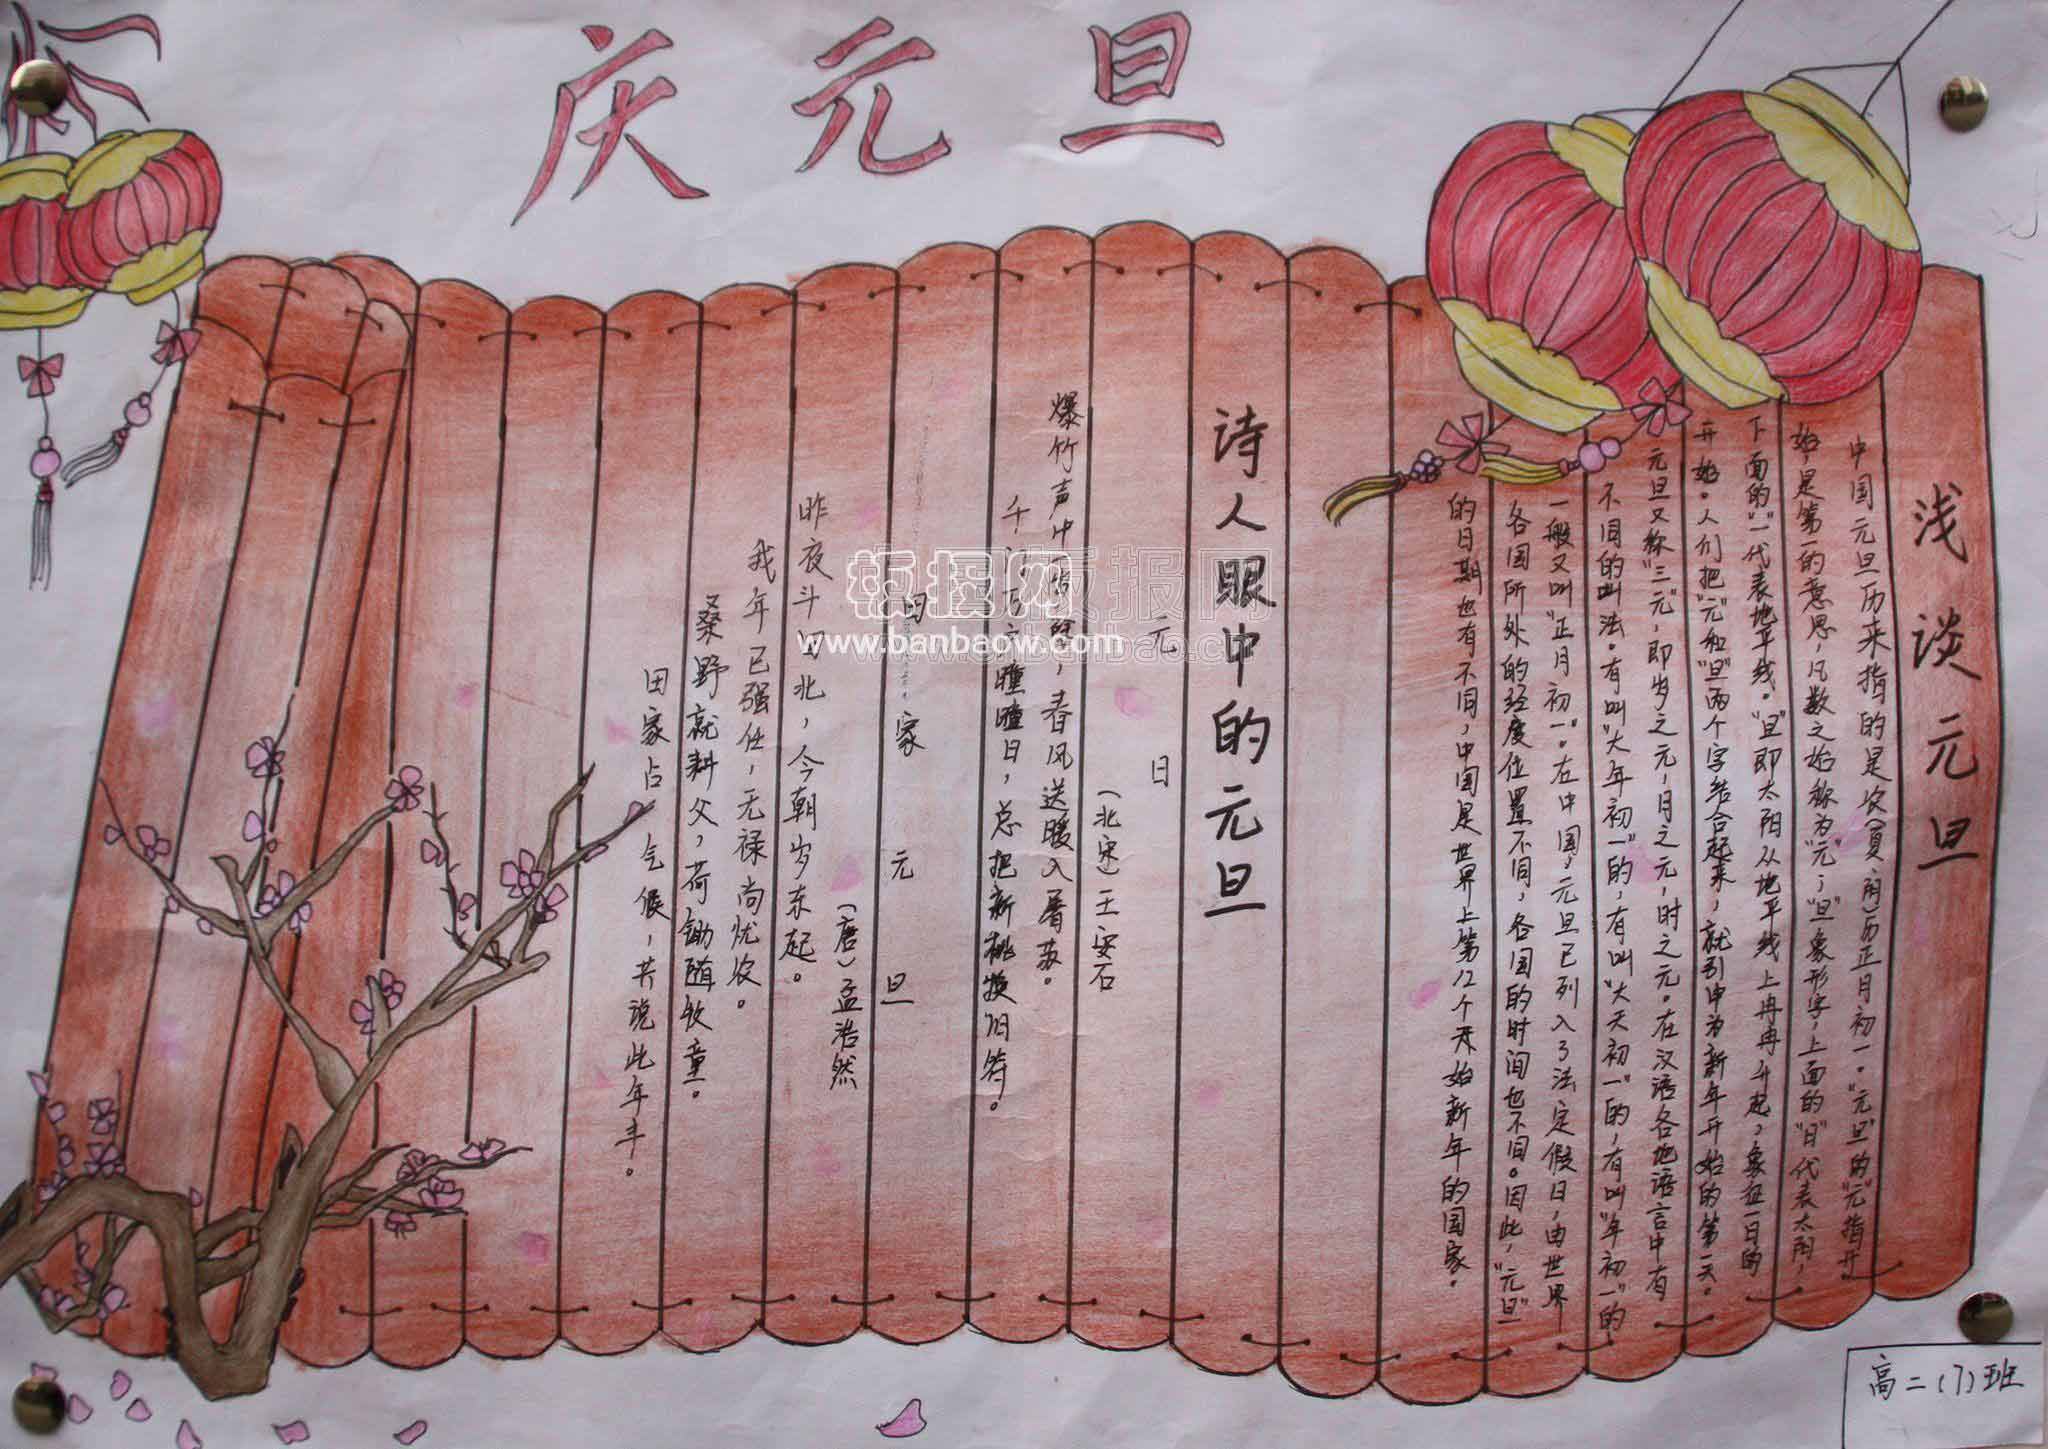 庆元旦
浅谈元旦
中国元旦历来指的是农(夏、阴)历正月初一。"元旦"的"元"指开
始,是第一的意思,凡数之始称为"元";"旦"象形字,上面的"日"代表太阳,
下面的"一"代表地平线。"旦"即太阳从地平线上冉冉升起,象征一日的
开始。人们把"元"和"旦"两个字结合起来,就引申为新年开始的第一天。
元旦又称"三元",即岁之元,月之元,时之元。在汉语各地语言中有
不同的叫法。有叫"大年初一"的,有叫"大天初一"的,有叫"年初一"的
一般又叫"正月初一"。在中国,元旦已列入了法定假日,由世界
各国所外的经度位置不同,各国的时间也不同。因此,"元旦"
的日期也有不同,中国是世界上第12个开始新年的国家。
诗人眼中的元旦
元日
(北宋)王安石
爆竹声中一岁除,春风送暖入屠苏。
千门万户曈曈日,总把新桃换旧符。
田家元旦
(唐)孟浩然
昨夜斗回北,今朝岁东起。
我年已强仕,无禄尚忧农。
桑野就耕父,荷锄随牧童。
田家占气候,共说此年丰。
高二(7)班
板报网
www.banbaow.com